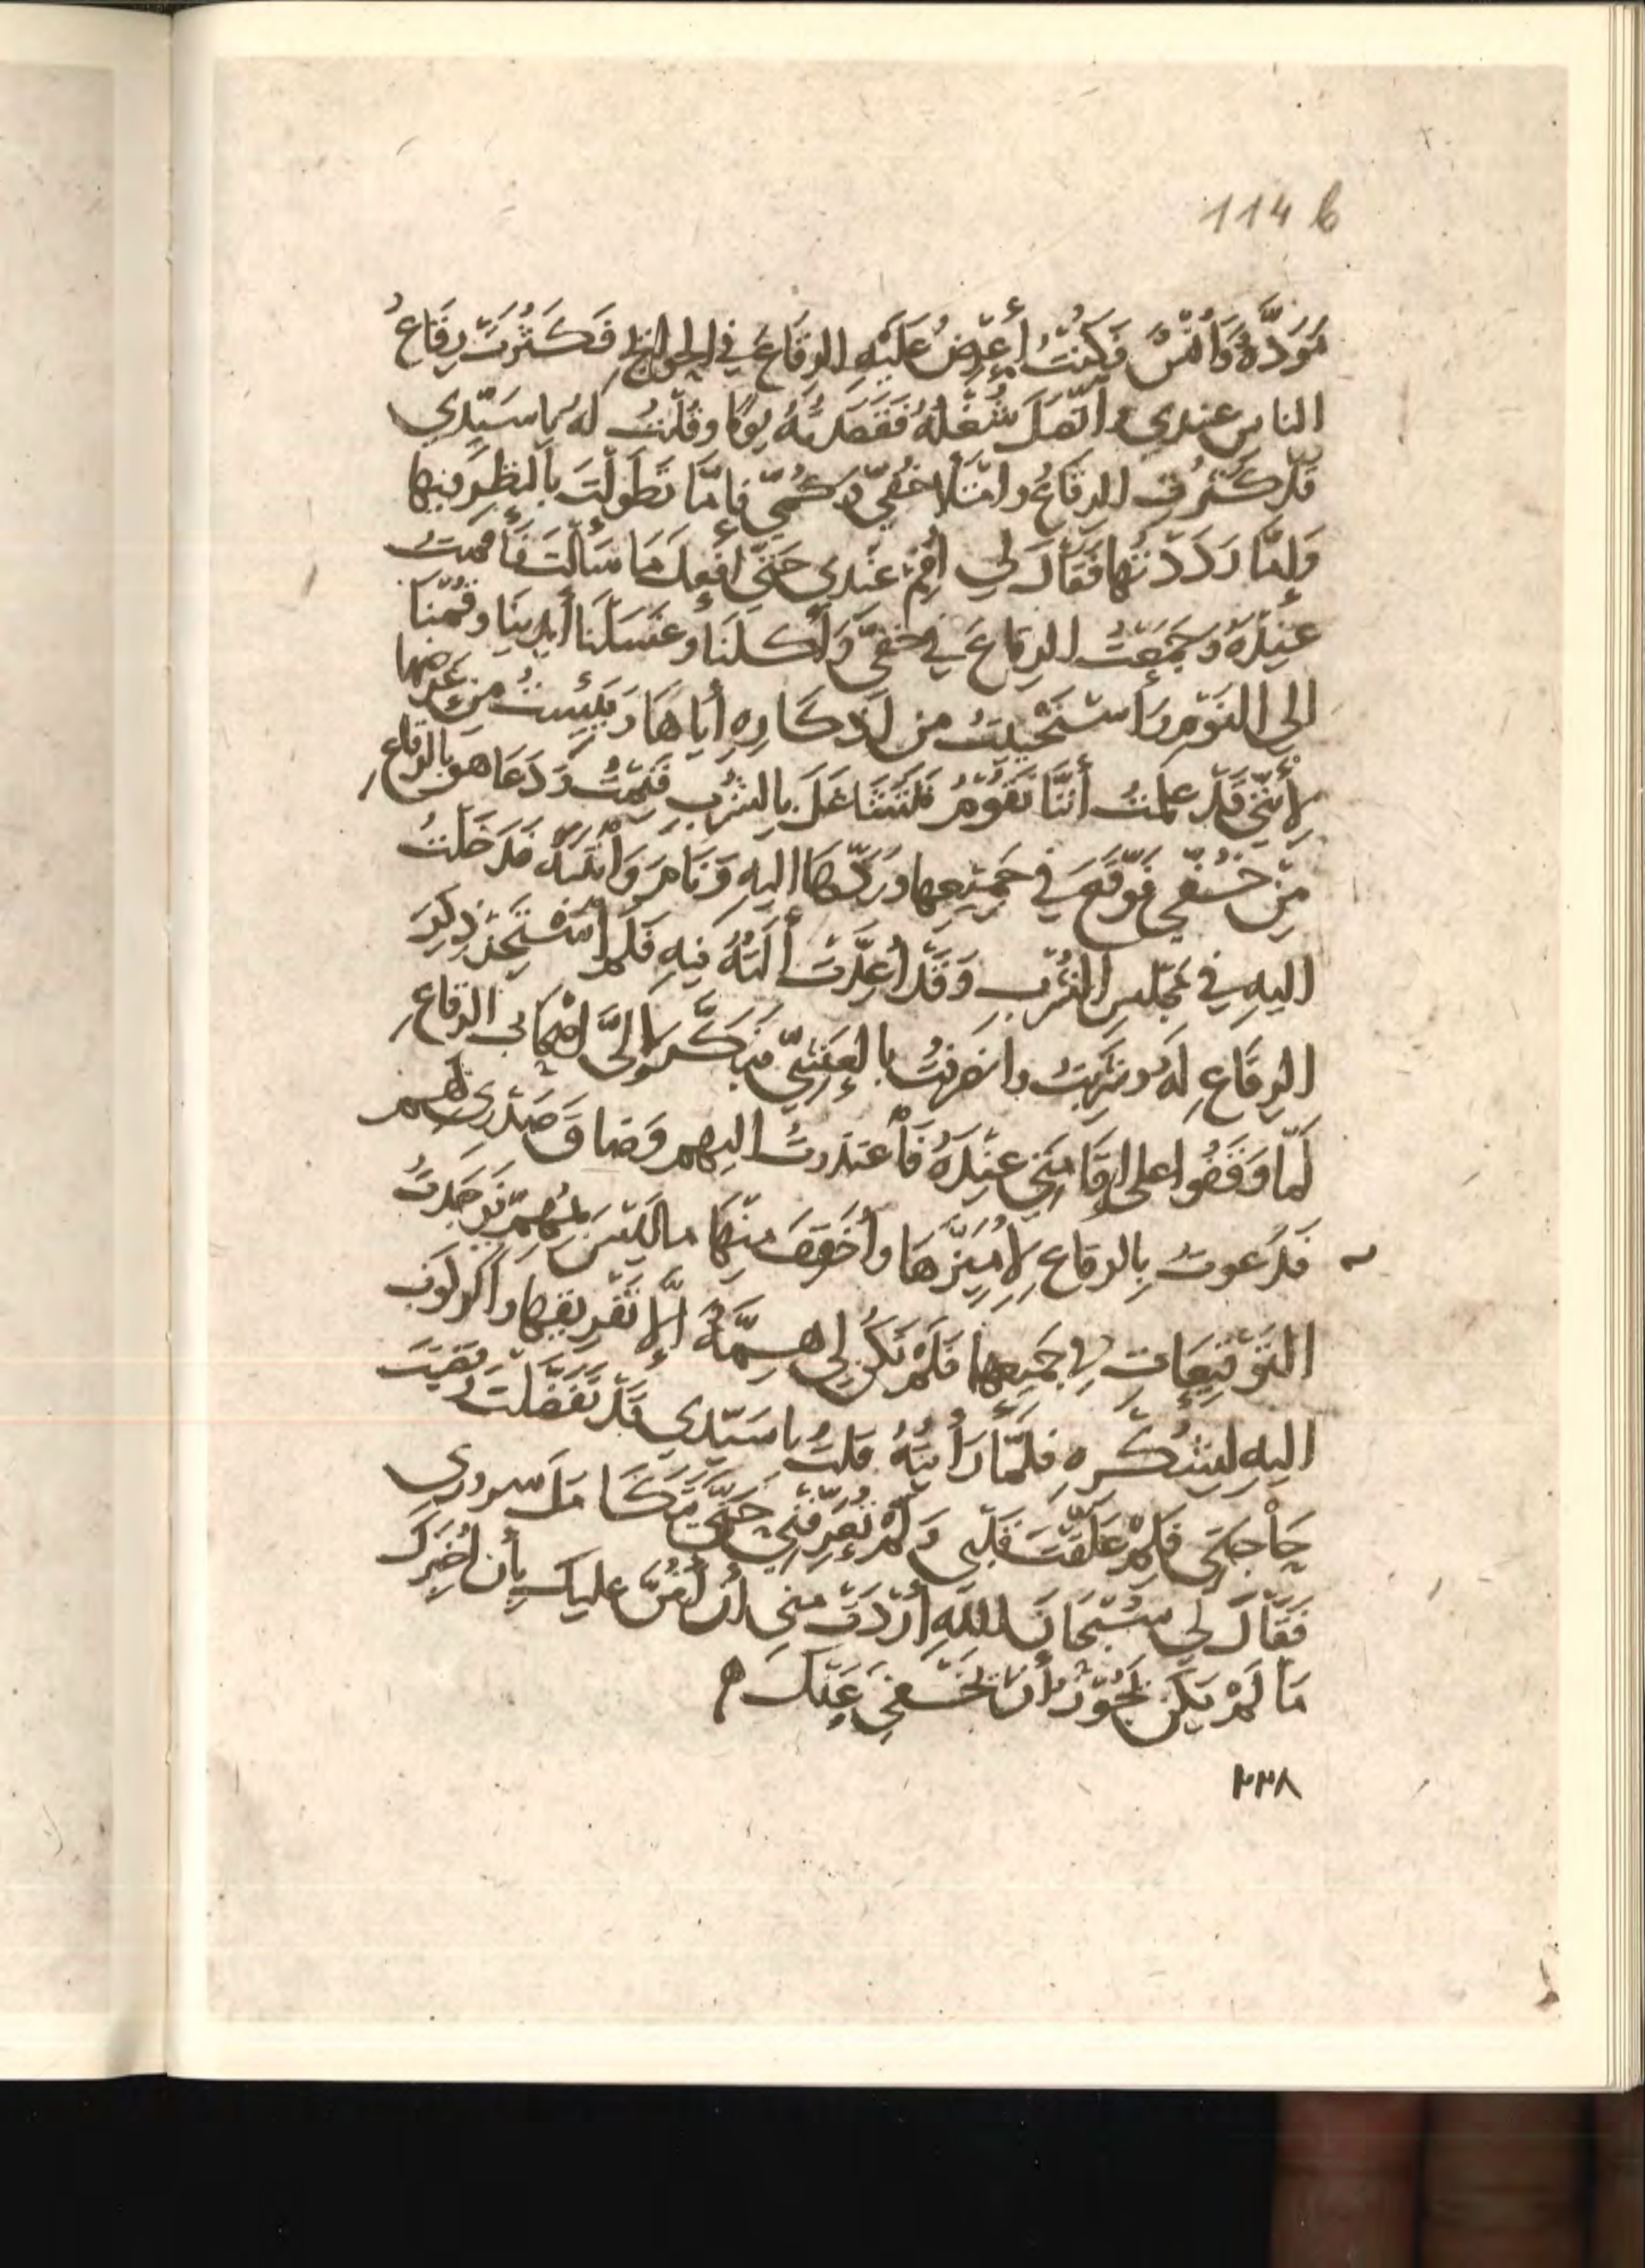 114 b
مَوَدَّةٌ وَأُنْسٌ فَكُنْتُ أَعْرِضُ عَلَيْهِ الرِقَاعَ في الحوائج فَكَثُرَتْ رِقَاعُ
الناس عندي واتَّصَلَ شُغْلُهُ فَقَصَدْتُهُ يومًا وقُلْتُ لهُ يا سَيّدي
قَدْ كَثُرَتِ الرِقَاعُ وامْتَلأ خُفّي وكُمّي فإمَّا تَطَوّلْتَ بالنظرِ فيها
وَإِمَّا رَدَدْتُها فَقَالَ لي أقِمْ عَنْدي حَتَّى أَفْعَلَ مَا سَأَلْتَ فَأقمتُ
عِنْدَهُ وجَمَعْتُ الرِقاعَ في خُفّي وَأَكَلنَا وغَسَلْنَا أَيْدِينَا وقُمْنَا
الى النَوْمِ وَأستَحْيَيتُ من اذكَارِهِ أيّاهَا ويَئِسْتُ مِن عَرْضِها
لِأَنّني قَدْ علمْتُ أَنَّنَا نَقُومُ فَنَتَشَاغَلَ بِالشُرْبِ فَنِمْتُ وَدَعَا هو بالرِقاعِ
مِنْ خُفّي فَوَقَّعَ في جَمِيْعِها ورَدَّهَا اليهِ وَنَامَ وَأنْتَبَهَ فَدَخَلْتُ
اليهِ في مَجْلسِ الشُرْبِ وَقَدْ أُعِدَّتْ أَلَتُهُ فيهِ فَلم أسْتَجِز ذِكرَ
الرِقَاعِ لَهُ وشَرِبْتُ وانصَرَفْتُ بالعَشِيّ فبَكَّرَ الَىَّ أصْحَابُ الرِقاعِ
لَمّا وَقَفُوا على إقَامَتي عِنْدَهُ فَأعتَذرتُ اليهم وَضاقَ صَدْرِى بهم
فَدَعوتُ بِالرقاعِ لِأُمَيّزَهَا وأُخَفّفَ منهَا ما لَيْسَ بمُهِمّ فَوَجَدتُ
التَوْقيعَاتِ في جَمِيعِها فَلَمْ تَكُنْ لِي هِمَّةٌ إلّا تَفْرِيقهَا والرُكوبَ
اليهِ لشُكْرِهِ فلمّا رَأَيْتُهُ قلتُ يا سَيّدِي قَدْ تَفَضَّلْتَ وقَضَيْتَ
حَاْجَتي فَلِمَ عَلّقْتَ قَلْبي وَلَمْ تُعَرّفْنِي حَتَّى يَتَكَامَل سرورى
فَقَالَ لِي سُبْحَانَ اللهِ أَرَدْتَ منى أنْ أَمُنَّ عليك بِأن أُخْبِرَكَ
مَا لَمْ يَكن يَجُوْزُ أنْ يَخْفَى عَنْكَ
٢٣٨